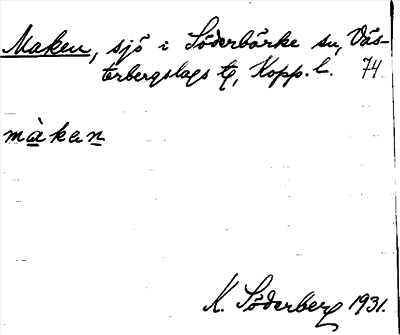 Maken, sjö i Söderbärke sn, Väs-
terbergslags tg, Kopp. l. 74
màkan
K. Söderberg 1931.